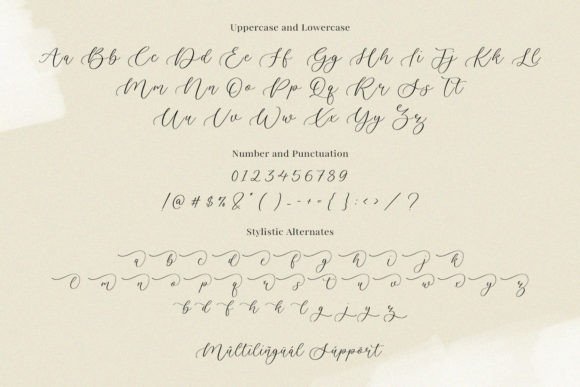 Uppercase and Lowercase
Aa Bb Cc Dd Ee Ff Gg Hh Ii Jj Kk Ll
Mm Nn Oo Pp Qq Rr Ss Tt
Uu Vv Ww Xx Yy Zz
Number and Punctuation
0123456789
!@#$%&*()_-+={}:<>/?
Stylistic Alternates
a b c d e f g h i j k
l m n o p q r s t u v w x y z
b d f h k l g j y z
Múltilingúál Súppórt